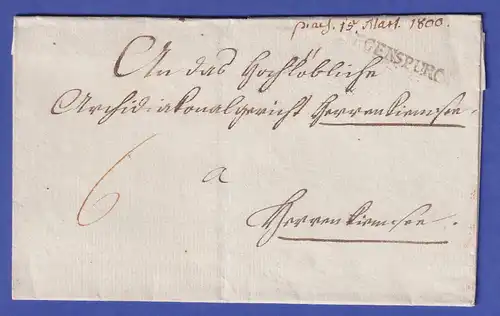 praes. 15. Mart. 1800.
REGENSPURG
An das Hochlöbliche
Archidiakonalgericht Herrenkiemsee.
6
a
Herrenkiemsee.